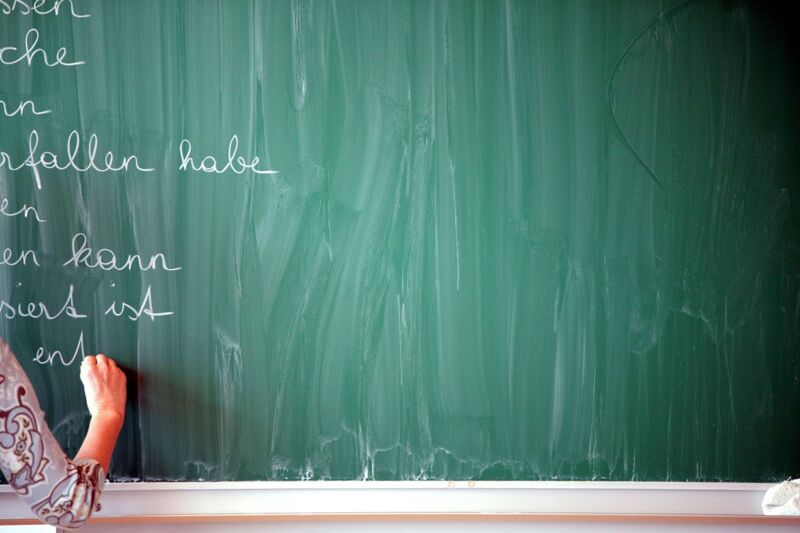 ssen
che
nn
rfallen habe
en
en kann
siert ist
ent